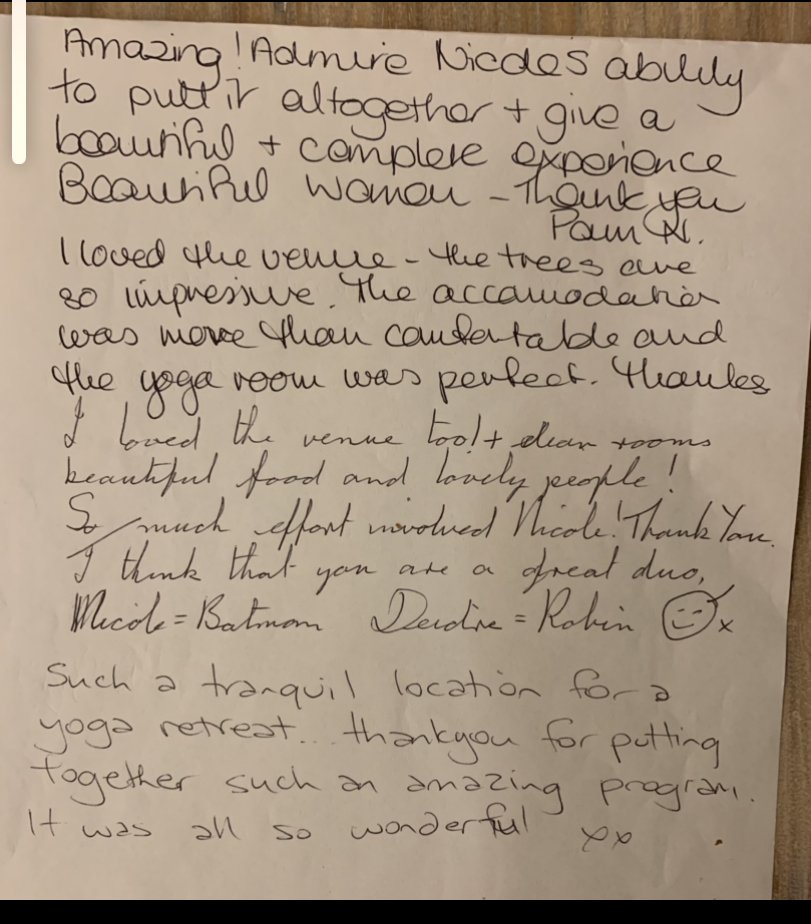 Amazing! Admire Nicoles ability
to putt it altogether + give a
beautiful + complete experience
Beautiful Women - Thank you
Pam N.
I loved the venue - the trees are
so impressive. The accamodation
was more than comfortable and
the yoga room was perfect. Thanks
I loved the venue too! + clean rooms
beautiful food and lovely people!
So much effort involved Nicole! Thank You.
I think that you are a great duo,
Nicole = Batman Deirdre = Robin ☺x
Such a tranquil location for a
yoga retreat... thankyou for putting
together such an amazing program.
It was all so wonderful xx